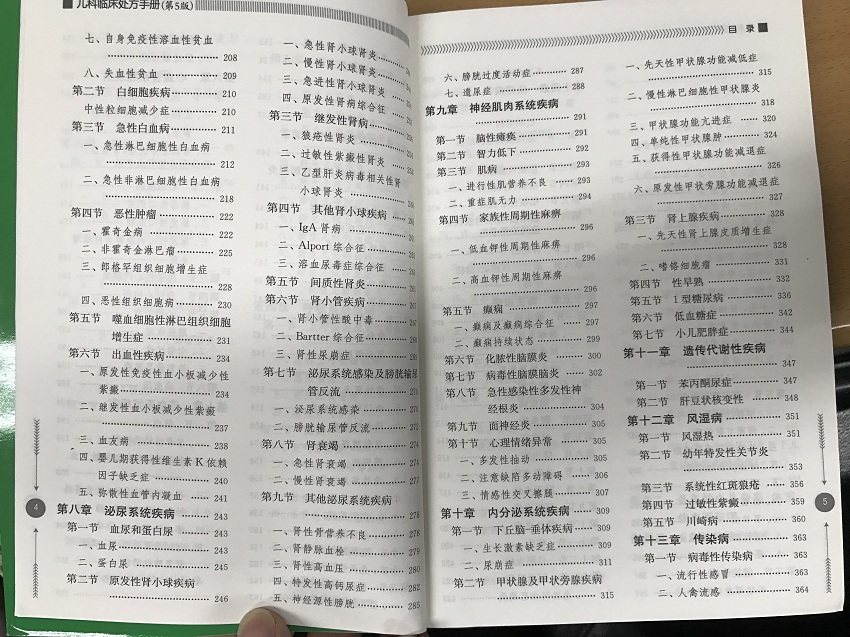 儿科临床处方手册(第5版)
七、自身免疫性溶血性贫血
208
八、失血性贫血 209
第二节 白细胞疾病 210
中性粒细胞减少症 210
第三节 急性白血病 211
一、急性淋巴细胞性白血病
212
二、急性非淋巴细胞性白血病
218
第四节 恶性肿瘤 222
一、霍奇金病 222
二、非霍奇金淋巴瘤 225
三、郎格罕组织细胞增生症
228
四、恶性组织细胞病 230
第五节 噬血细胞性淋巴组织细胞
增生症 231
第六节 出血性疾病 234
一、原发性免疫性血小板减少性
紫癜 234
二、继发性血小板减少性紫癜
237
三、血友病 238
四、婴儿期获得性维生素K依赖
因子缺乏症 240
五、弥散性血管内凝血 241
第八章 泌尿系统疾病 243
第一节 血尿和蛋白尿 243
一、血尿 243
二、蛋白尿 245
第二节 原发性肾小球疾病
246
一、急性肾小球肾炎
二、慢性肾小球肾炎
三、急进性肾小球肾炎
四、原发性肾病综合征
第三节 继发性肾病
一、狼疮性肾炎
二、过敏性紫癜性肾炎
三、乙型肝炎病毒相关性肾
小球肾炎
第四节 其他肾小球疾病
一、IgA肾病
二、Alport综合征
三、溶血尿毒症综合征
第五节 间质性肾炎
第六节 肾小管疾病
一、肾小管性酸中毒
二、Bartter综合征
三、肾性尿崩症
第七节 泌尿系统感染及膀胱输尿
管反流 271
一、泌尿系统感染 271
二、膀胱输尿管反流
第八节 肾衰竭 274
一、急性肾衰竭 274
二、慢性肾衰竭
第九节 其他泌尿系统疾病
278
一、肾性骨营养不良 278
二、肾静脉血栓
三、肾性高血压
四、特发性高钙尿症 282
五、神经源性膀胱 285
4
目 录
六、膀胱过度活动症 287
七、遗尿症 288
第九章 神经肌肉系统疾病
291
第一节 脑性瘫痪 291
第二节 智力低下 292
第三节 肌病 293
一、进行性肌营养不良 293
二、重症肌无力 294
第四节 家族性周期性麻痹
296
一、低血钾性周期性麻痹
296
二、高血钾性周期性麻痹
296
第五节 癫痫 297
一、癫痫及癫痫综合征 297
二、癫痫持续状态 299
第六节 化脓性脑膜炎 300
第七节 病毒性脑膜脑炎 302
第八节 急性感染性多发性神
经根炎 304
第九节 面神经炎 305
第十节 心理情绪异常 305
一、多发性抽动 305
二、注意缺陷多动障碍 306
三、情感性交叉擦腿 307
第十章 内分泌系统疾病 309
第一节 下丘脑-垂体疾病 309
一、生长激素缺乏症 309
二、尿崩症 311
第二节 甲状腺及甲状旁腺疾病
315
一、先天性甲状腺功能减低症
315
二、慢性淋巴细胞性甲状腺炎
318
三、甲状腺功能亢进症 320
四、单纯性甲状腺肿 324
五、获得性甲状腺功能减退症
326
六、原发性甲状旁腺功能减退症
327
第三节 肾上腺疾病 328
一、先天性肾上腺皮质增生症
328
二、嗜铬细胞瘤 331
第四节 性早熟 332
第五节 1型糖尿病 336
第六节 低血糖症 342
第七节 小儿肥胖症 344
第十一章 遗传代谢性疾病
347
第一节 苯丙酮尿症 347
第二节 肝豆状核变性 348
第十二章 风湿病 351
第一节 风湿热 351
第二节 幼年特发性关节炎
353
第三节 系统性红斑狼疮 356
第四节 过敏性紫癜 359
第五节 川崎病 360
第十三章 传染病 363
第一节 病毒性传染病 363
一、流行性感冒 363
二、人禽流感 364
5